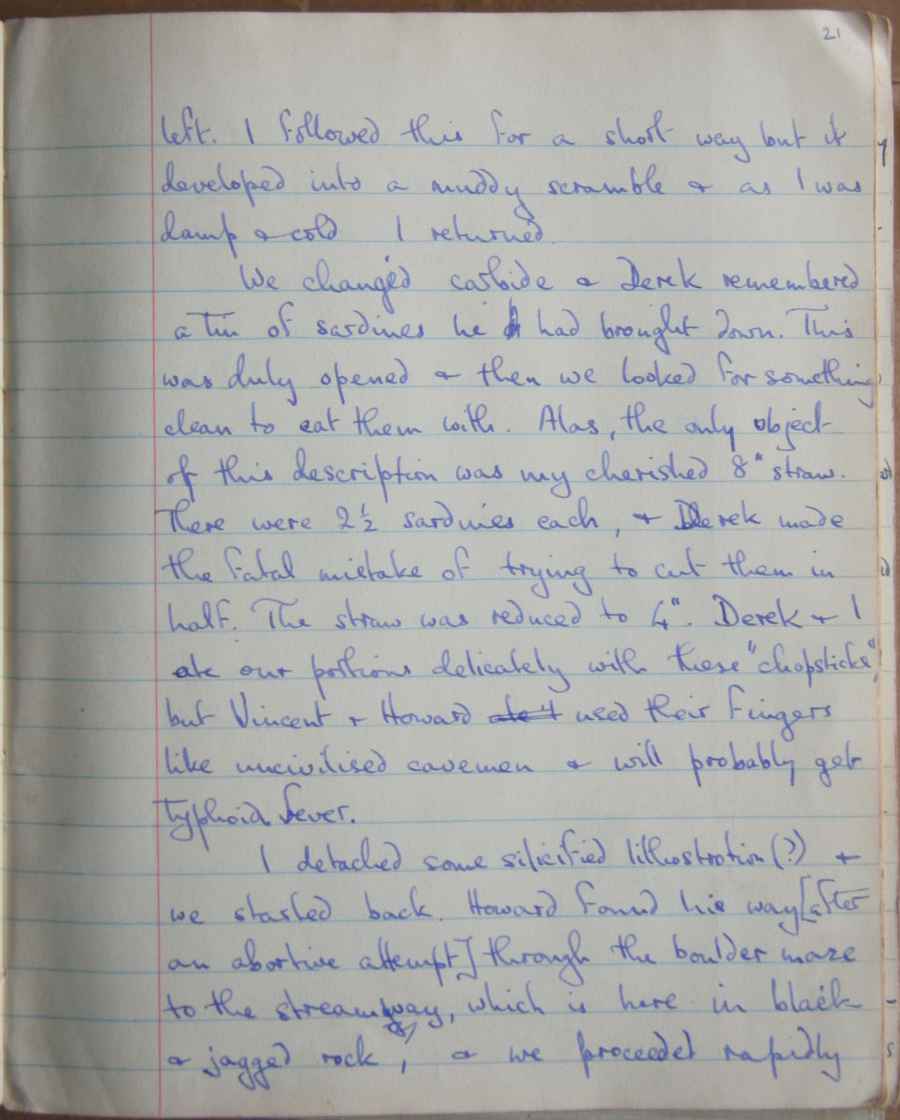 21
left. I followed this for a short way but it
developed into a muddy scramble & as I was
damp & cold I returned.
We changed carbide & Derek remembered
a Tin of sardines he had brought down. This
was duly opened & then we looked for something
clean to eat them with. Alas, the only object
of this description was my cherished 8" straw.
There were 2½ sardines each, & Derek made
the fatal mistake of trying to cut them in
half. The straw was reduced to 4". Derek & I
ate our portions delicately with these "chopsticks",
but Vincent & Howard used their fingers
like uncivilised cavemen & will probably get
Typhoid fever.
I detached some silicified lilhostrotion (?) &
we started back. Howard found his way [after
an abortive attempt] through the boulder maze
to the streamway, which is here in black
& jagged rock, & we proceeded rapidly